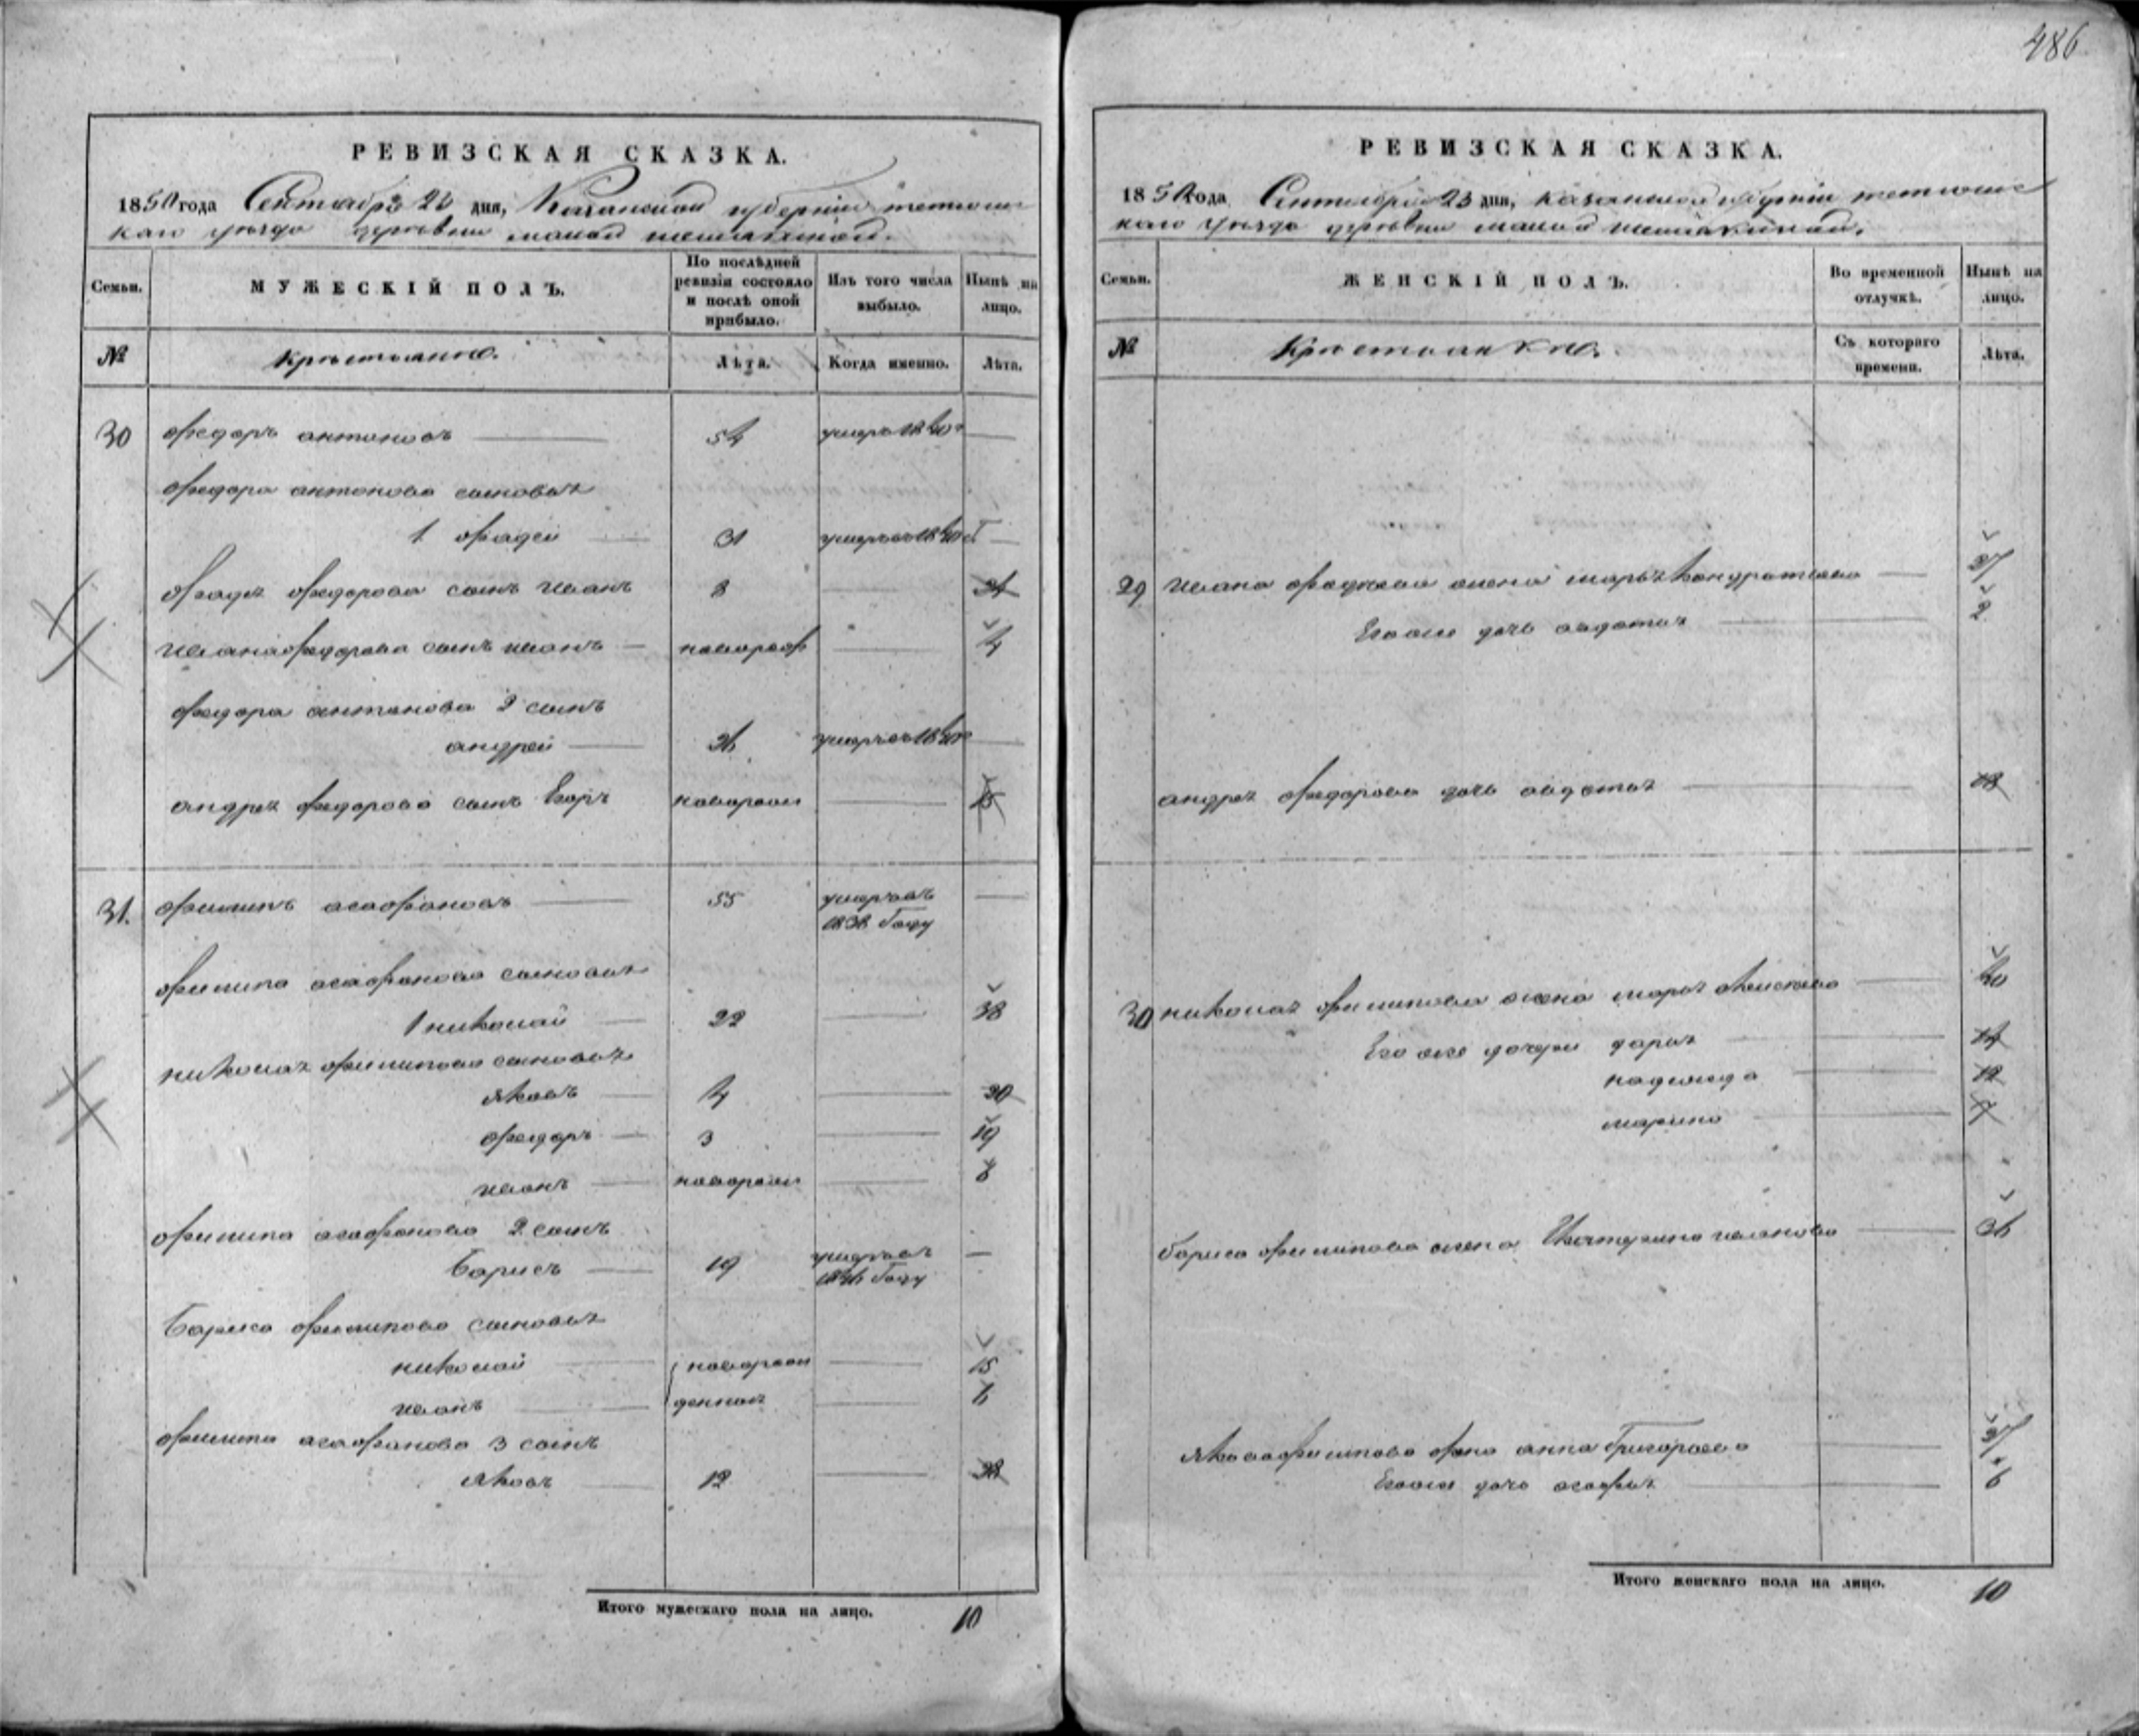 486
РЕВИЗСКАЯ СКАЗКА.
1850 года Сентября 23 дня, Казанской губернии тетюшс
каго уѣзда деревни малой шемякиной.
Семьи.
МУЖЕСКІЙ ПОЛЪ.
По послѣдней ревизіи состояло и послѣ оной прибыло.
Изъ того числа выбыло.
Нынѣ на лицо.
№
крестьяне.
Лѣта.
Когда именно.
Лѣта.
30 федоръ антоновъ 54 умеръ 1840
федора антонова сыновья
1 фадей 31 умеръ въ 1840 г
фадея федорова сынъ иванъ 8 24
ивана федорова сынъ иванъ новорож 4
федора антонова 2 сынъ
андрей 26 умеръ въ 1840
андрея федорова сынъ Егоръ новорож 15
31. филипъ агафоновъ 55 умеръ въ
1838 году
филипа агафонова сыновья
1 николай 22 38
николая филипова сыновья
яковъ 4 20
федоръ 3 19
иванъ новорож 8
филипа агафонова 2 сынъ
борисъ 19 умеръ въ
1846 году
бориса филипова сыновья
николай новорож 15
иванъ денныя 6
филипа агафонова 3 сынъ
яковъ 12 28
Итого мужескаго пола на лицо. 10
РЕВИЗСКАЯ СКАЗКА.
1850 года Сентября 23 дня, казанской губернии тетюшс
каго уѣзда деревни малой шемякиной.
Семьи.
ЖЕНСКІЙ ПОЛЪ.
Во временной отлучкѣ.
Нынѣ на лицо.
№
Крестьянки.
Съ котораго времени.
Лѣта.
29 ивана фадеева жена марья кондратьева 27
Его же дочь авдотья 2
андрея федорова дочь авдотья 18
30 николая филипова жена марья 40
Его же дочери дарья 14
надежда 12
марина 7
бориса филипова жена Катерина иванова 36
якова филипова жена анна Григорьева 27
Его же дочь агафья 6
Итого женскаго пола на лицо. 10